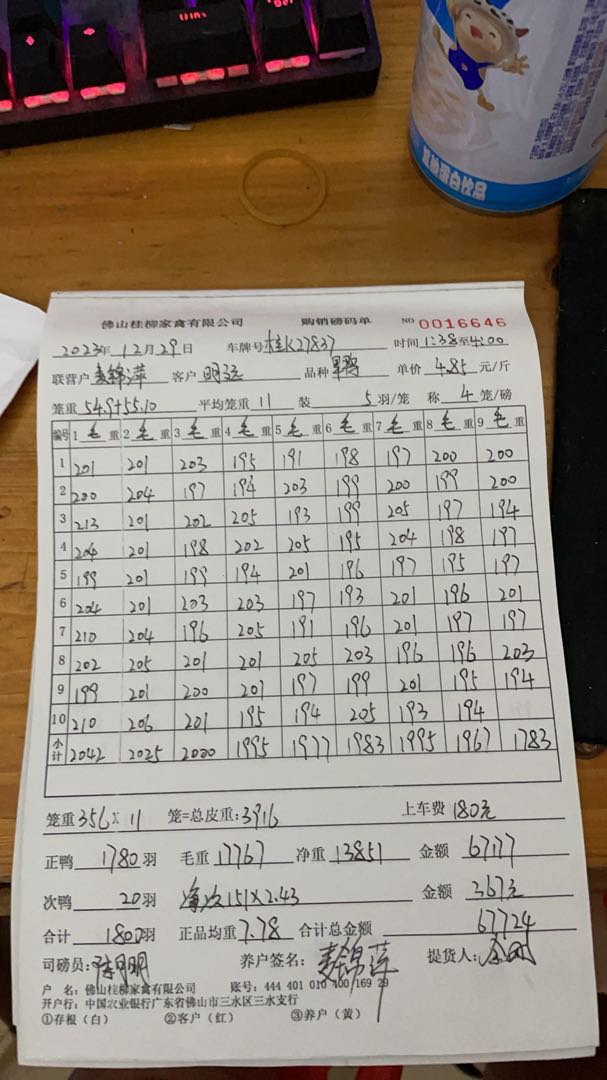 Ins
Del
佛山桂柳家禽有限公司 购销磅码单 NO 0016646
2023年12月29日 车牌号桂K27837 时间1:38至4:00
联营户麦锦萍 客户明远 品种 单价4.85元/斤
笼重54.9+55.10 平均笼重11 装5羽/笼 称4笼/磅
编号 1毛重 2毛重 3毛重 4毛重 5毛重 6毛重 7毛重 8毛重 9毛重
1 201 201 203 195 191 198 197 200 200
2 200 204 197 194 203 199 200 199 200
3 213 201 202 205 193 199 205 197 194
4 204 201 198 202 205 195 204 198 197
5 199 201 199 194 201 196 197 195 197
6 204 201 203 203 197 193 201 196 201
7 210 204 196 205 191 196 201 197 197
8 202 205 201 201 205 203 196 196 203
9 199 201 200 201 197 199 201 195 194
10 210 206 201 195 194 205 193 194
小计 2042 2025 2000 1995 1977 1983 1995 1967 1783
笼重356×11 笼=总皮重:3916 上车费180元
正鸭1780羽 毛重17767 净重13851 金额67177
次鸭20羽 净次151×2.43 金额367元
合计1800羽 正品均重7.78 合计总金额67724
司磅员: 养户签名:麦锦萍 提货人:
户 名:佛山桂柳家禽有限公司 账号:444 401 010 400 169 29
开户行:中国农业银行广东省佛山市三水区三水支行
①存根(白) ②客户(红) ③养户(黄)